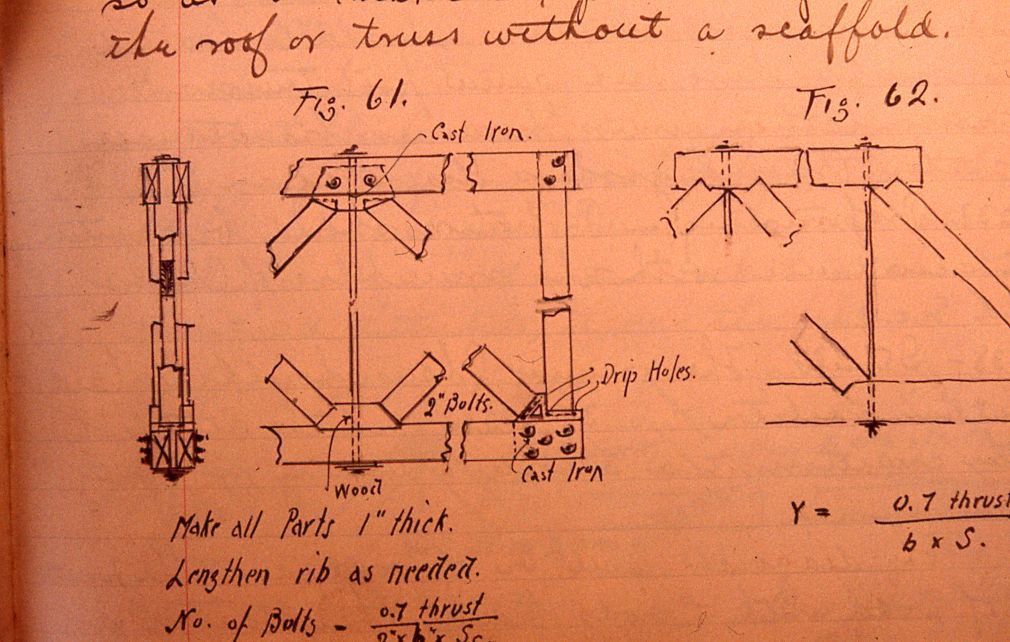 so as
the roof or truss without a scaffold.
Fig. 61.
Fig. 62.
Cast Iron.
Drip Holes.
2" Bolts.
Cast Iron
Wood
Make all Parts 1" thick.
Lengthen rib as needed.
No. of Bolts = 0.7 thrust
2" x b" x Sc.
Y = 0.7 thrust
b x S.